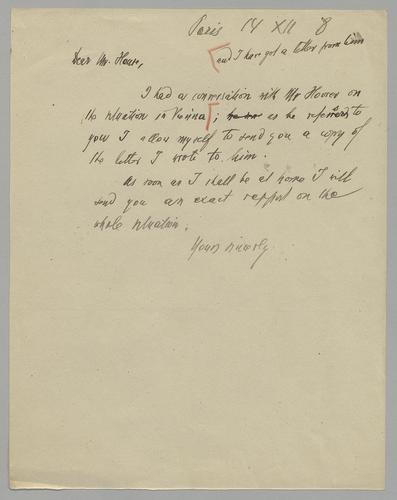 Paris 14 XII 8
Dear Mr. House,
and I have got a letter from him
I had a conversation with Mr Hoover on
the situation in Vienna; as he referred to
you I allow myself to send you a copy of
the letter I wrote to him.
As soon as I shall be at home I will
send you an exact rapport on the
whole situation.
Yours sincerly